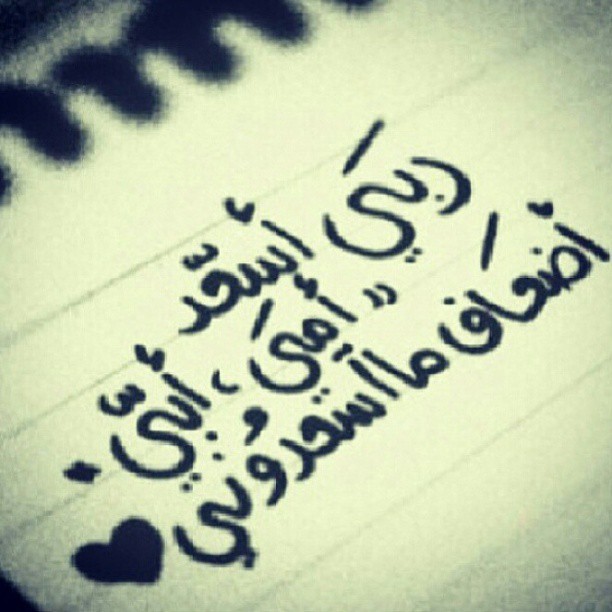 ربيَ أسْعدّ
"أميَ ، أبيّ .
أضعَاف ماأسعدُوني ♥